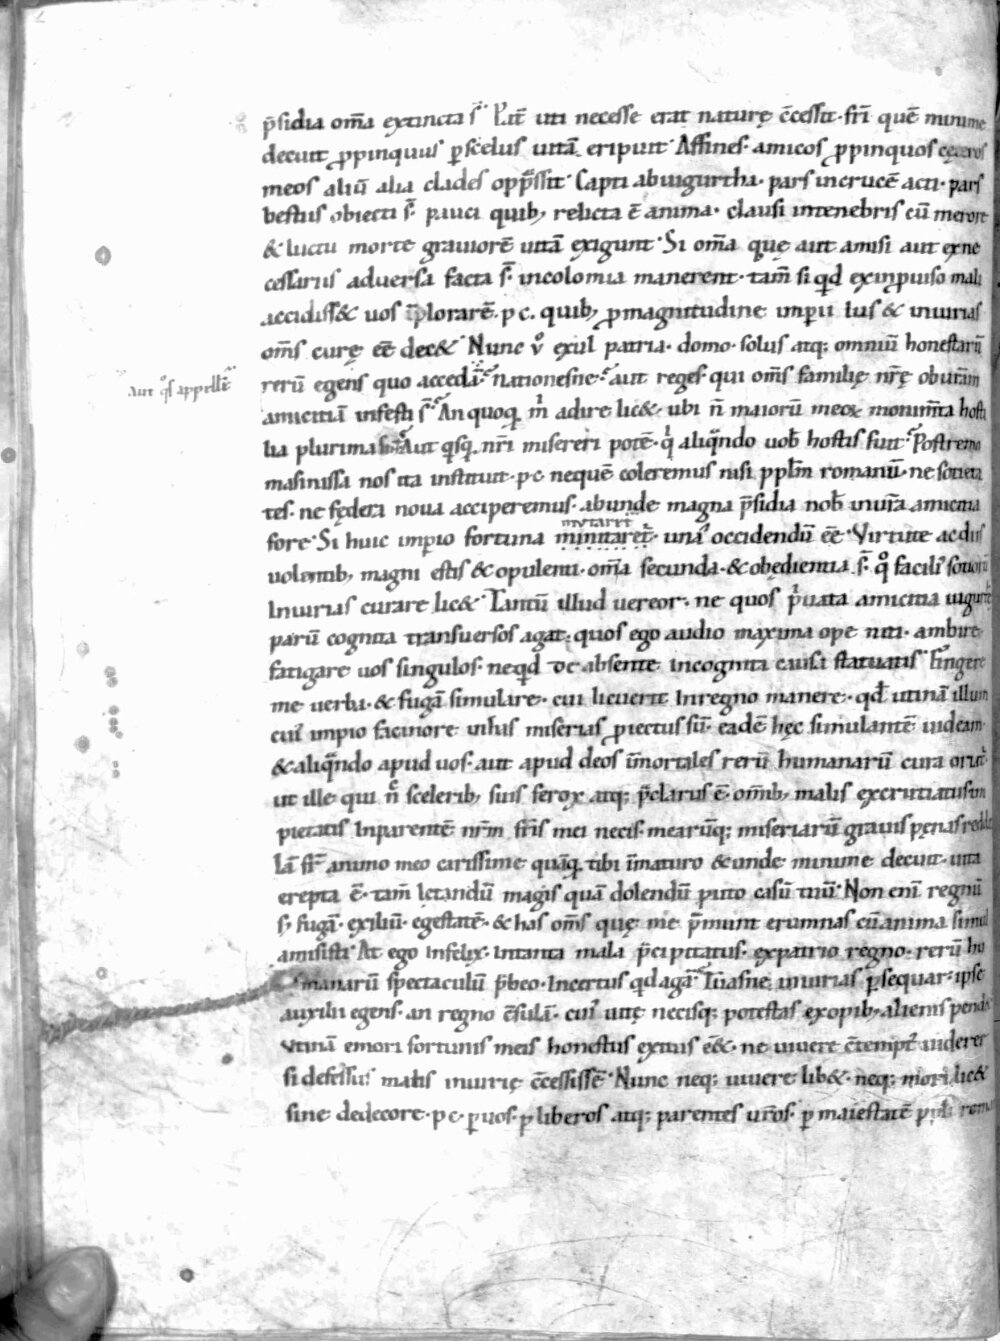 p̄sidia om̄a extincta s̄. Pat̄ uti necesse erat naturę c̄cessit. fr̄i quē minime
decuit ꝓpinquus ꝑ scelus uitā eripuit. Affines. amicos ꝓpinquos cęteros
meos aliū alia clades opp̄ssit. Capti abiugurtha. pars incrucē acti. pars
bestiis obiecti s̄. pauci quib; relicta ē anima. clausi intenebris cū merore
& luctu morte grauiorē uitā exigunt. Si om̄a quę aut amisi aut exne
cessariis aduersa facta s̄. incolomia manerent. tam̄ si qd eximꝓuiso mali
accidiss& uos īplorarē. p c. quib; ꝓ magnitudine imꝑii ius & iniurias
om̄s curę eē dec&. Nunc v̊ exul patria. domo. solus atq; omniū honestarū
Aut q̊s appellē
rerū egens quo accedā. nationesne. aut reges. qui om̄s familię nr̄ę ob ur̄am
amicitiā infesti s̄. An quoquā m̍ adire lic&. ubi n̄ maiorū meoꝝ monim̄ta hosti
lia plurima s̄. Aut qͥsq̄ nr̄i misereri potē. qͥ aliqᷓndo uob̄ hostis fuit. Postremo
masinissa nos ita instituit. p c. nequē coleremus nisi ppl̄m romanū. ne societa
tes. ne fędera noua acciperemus. abunde magna p̄sidia nob̄ inur̄a amicitia
fore. Si huic impio fortuna minitaret̄. una occidendū eē. Virtute ac diis
mutaret̄
uolentib; magni estis & opulenti. om̄a secunda. & obedientia s̄. q̊ facili sociorū
Iniurias curare lic&. Tantū illud uereor. ne quos p̍uata amicitia iugurt̄
parū cognita transuersos agat. quos ego audio maxima ope niti. ambire
fatigare uos singulos. neqͥd de absente incognita causa statuatis. Fingere
me uerba. & fugā simulare. cui licuerit Inregno manere. qd̄ utinā illum
cui̍ impio facinore inhas miserias ꝓiectus sū. eadē hęc simulantē uideam
& aliqᷓndo apud uos. aut apud deos īmortales rerū humanarū cura oriat̄.
ut ille qui nc̄ scelerib; suis ferox atq; p̄clarus ē. om̄ib; malis excrutiatus im
pietatis Inparentē nr̄m fr̄is mei necis. mearūq; miseriarū grauis pęnas reddat
Iā fr̄ animo meo carissime quāq̄ tibi īmaturo & unde minime decuit. uita
erepta ē. tam̄ lętandū magis quā dolendū puto casū tuū. Non eni regnū
s; fugā. exiliū. egestatē. & has om̄s quę me p̄munt erumnas cū anima simul
amisisti. At ego Infelix. Intanta mala p̄cipitatus. expatrio regno. rerū hu
manarū spectaculū p̄beo. Incertus qd agā. Tuasne iniurias ꝑsequar. ipse
auxilii egens. an regno c̄sulā. cui̍ uitę necisq; potestas exopib; alienis pend&
utinā emori fortunis meis honestus exitus ē&. ne uiuere c̄tempt̍ uiderer
si defessus malis iniurię c̄cessissē. Nunc neq; uiuere lib&. neq; mori lic&
sine dedecore. p c. ꝑ uos. ꝑ liberos atq; parentes uros. ꝑ maiestatē ppli roma